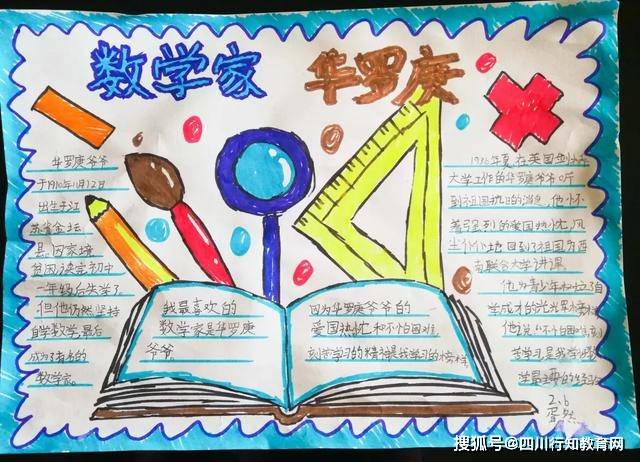 数学家 华罗庚
华罗庚爷爷
于1910年11月12日
出生于江
苏省金坛
县,因家境
贫困,读完初中
一年级后失学了
但他仍然坚持
自学数学,最后
成为了有名的
数学家。
我最喜欢的
数学家是华罗庚
爷爷。
因为华罗庚爷爷的
爱国热忱和不怕困难
刻苦学习的精神是我学习的榜样
年夏,在英国剑
大学工作的华罗庚爷爷
到祖国抗日的消息,他怀
着强烈的爱国热忱,风
尘仆仆地回到了祖国,为西
南联合大学讲课。
他为青少年树立了自
学成才的光
他说"不怕困难,刻
苦学习,是我学
学最主要的经验
2.6
搜狐号@四川行知教育网